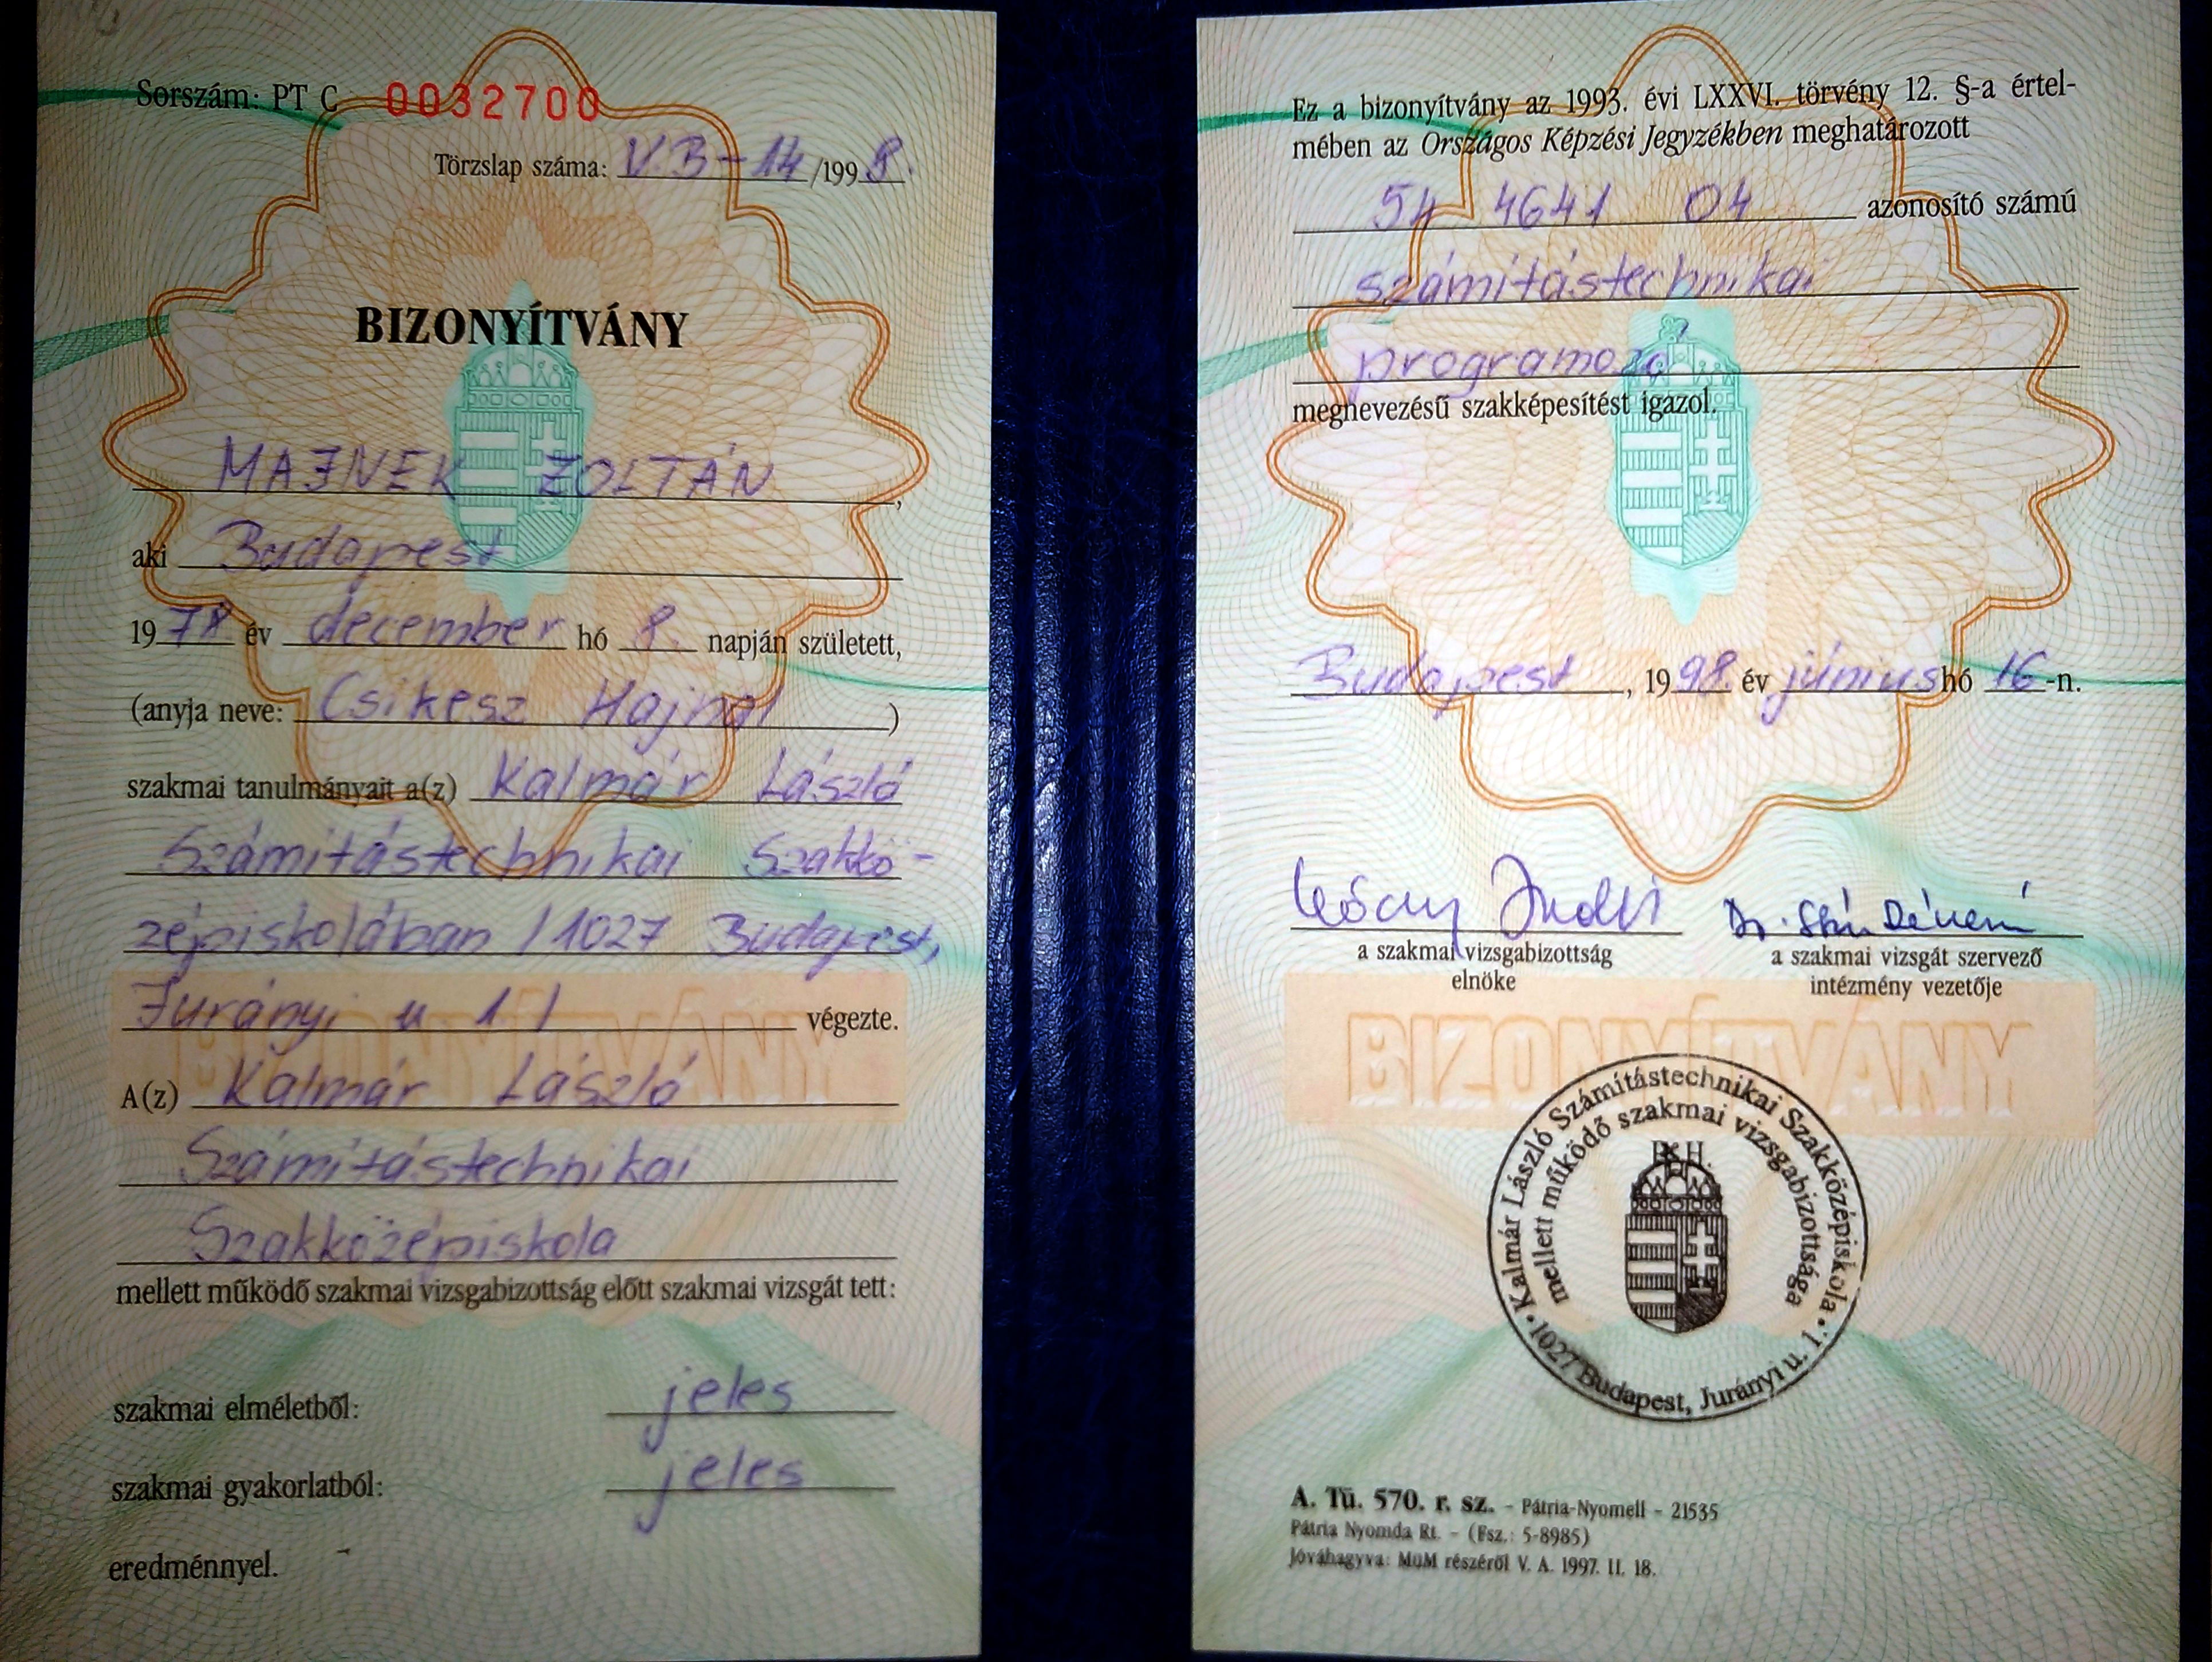 Sorszám: PT C 0032700
Törzslap száma: V.B-14/1998.
BIZONYÍTVÁNY
MAJNEK ZOLTÁN,
aki Budapest
1978 év december hó 8. napján született,
(anyja neve: Csikesz Hajnal)
szakmai tanulmányait a(z) Kalmár László
Számítástechnikai Szakkö-
zépiskolában /1027 Budapest,
Jurányi u 1/ végezte.
A(z) Kalmár László
Számítástechnikai
Szakközépiskola
mellett működő szakmai vizsgabizottság előtt szakmai vizsgát tett:
szakmai elméletből: jeles
szakmai gyakorlatból: jeles
eredménnyel.
Ez a bizonyítvány az 1993. évi LXXVI. törvény 12. §-a értel-
mében az Országos Képzési Jegyzékben meghatározott
54 4641 04 azonosító számú
számítástechnikai
programozó
megnevezésű szakképesítést igazol.
Budapest, 1998. év június hó 16-n.
a szakmai vizsgabizottság
elnöke
a szakmai vizsgát szervező
intézmény vezetője
BIZONYÍTVÁNY
BIZONYÍTVÁNY
Kalmár László Számítástechnikai Szakközépiskola
mellett működő szakmai vizsgabizottsága
1027 Budapest, Jurányi u. 1.
A. Tü. 570. r. sz. – Pátria-Nyomell – 21535
Pátria Nyomda Rt. – (Fsz.: 5-8985)
Jóváhagyva: MüM részéről V. A. 1997. II. 18.